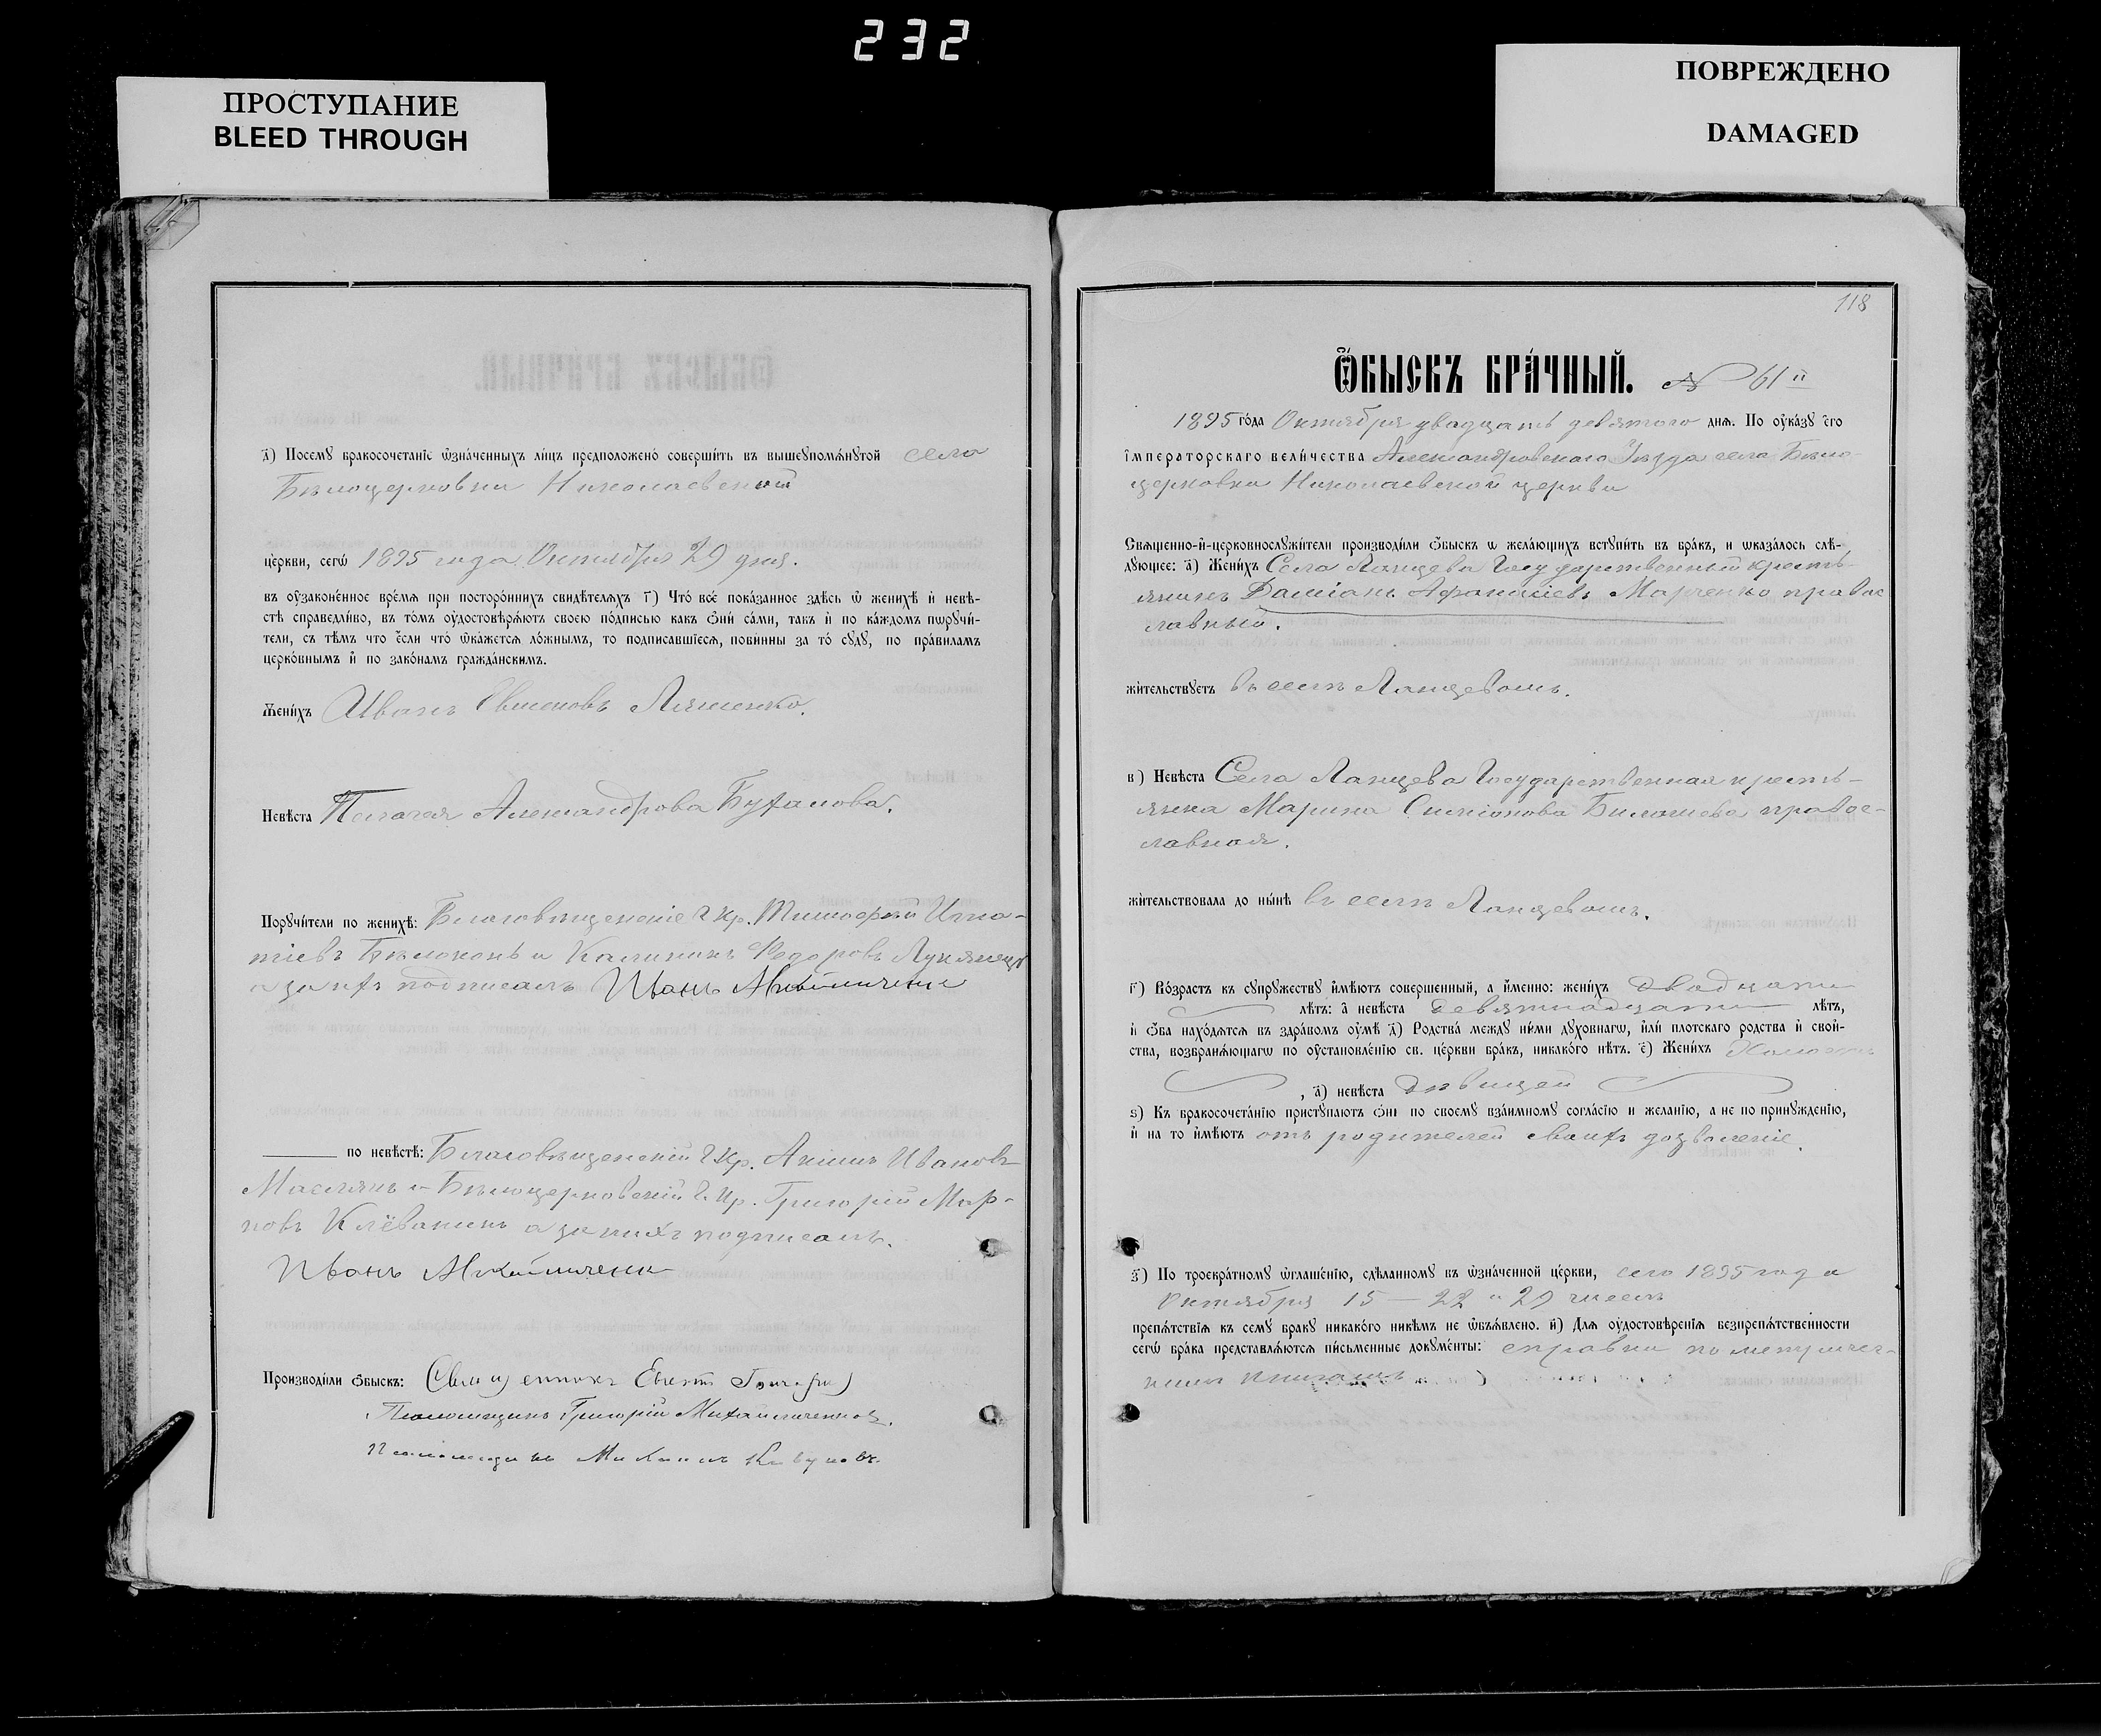 232
ПРОСТУПАНИЕ
BLEED THROUGH
ПОВРЕЖДЕНО
DAMAGED
а҃) Посемꙋ бракосочетанїе ѡзначенныхъ лицъ предположено совершить въ вышеꙋпомѧнꙋтой села
Бѣлоцерковки Николаевской
церкви, сегѡ 1895 года Октября 29 дня.
въ оузаконенное времѧ при постороннихъ свидѣтелѧхъ г҃) Что все показанное здѣсь ѡ женихѣ и невѣ-
стѣ справедливо, въ томъ оудостовѣрѧютъ своею подписью какъ ѻни сами, такъ и по каждомъ порꙋчи-
тели, съ тѣмъ что если что ѡкажетсѧ ложнымъ, то подписавшїесѧ, повинны за то сꙋдꙋ, по правиламъ
церковнымъ и по законамъ гражданскимъ.
Женихъ Иванъ Ляшенко.
Невѣста Пелагея Александрова
Порꙋчители по женихѣ: Г. кр. Тимофей Игна-
тіевъ Бѣлоконь и Калиникъ Федоровъ
а за нихъ подписалъ Иванъ
по невѣстѣ: Благовѣщенскій Г. кр. Акимъ Ивановъ
и Бѣлоцерковскій Г. кр. Григорій Мар-
ковъ а за нихъ подписалъ.
Иванъ
Производили ѻбыскъ: Священникъ
Псаломщикъ Григорій
Псаломщикъ Михаилъ
118
ѺБЫСКЪ БРАЧНЫЙ. № 61й
1895 года Октября двадцать девятого днѧ. По оуказꙋ его
императорскаго величества Александровского Уѣзда села Бѣло-
церковки Николаевской церкви
Свѧщенно-и-церковнослꙋжители производили ѻбыскъ ѡ желающихъ встꙋпить въ бракъ, и ѡказалось слѣ-
дꙋющее: а҃) Женихъ Села Ланцева Государственный кресть-
янинъ Даміанъ Афанасіевъ Марченко правос
лавный.
жительствꙋетъ въ селѣ Ланцевомъ.
в) Невѣста Села Ланцева Государственная кресть-
янка Марина Симіонова правос-
лавная.
жительствовала до нынѣ въ селѣ Ланцевомъ.
г҃) Возрастъ къ сꙋпрꙋжествꙋ имѣютъ совершенный, а именно: женихъ двадцати
лѣтъ: а невѣста девятнадцати лѣтъ,
и ѻба находѧтсѧ въ здравомъ оумѣ д҃) Родства междꙋ ними дꙋховнагѡ, или плотскаго родства и свой-
ства, возбранѧющагѡ по оустановленїю св. церкви бракъ, никакого нѣтъ. е҃) Женихъ Холостъ
, а҃) невѣста дѣвицей
ѕ) Къ бракосочетанїю пристꙋпаютъ ѻни по своемꙋ взаимномꙋ согласїю и желанїю, а не по принꙋжденїю,
и на то имѣютъ отъ родителей своихъ дозволеніе.
з҃) По троекратномꙋ ѡглашенїю, сдѣланномꙋ въ ѡзначенной церкви, сего 1895 года
Октября 15 — 22 и 29 чиселъ
препѧтствїѧ къ семꙋ бракꙋ никакого никѣмъ не ѡбъѧвлено. и҃) Длѧ оудостовѣренїѧ безпрепѧтственности
сегѡ брака представлѧютсѧ письменные докꙋменты: справки по метричес-
кимъ книгамъ